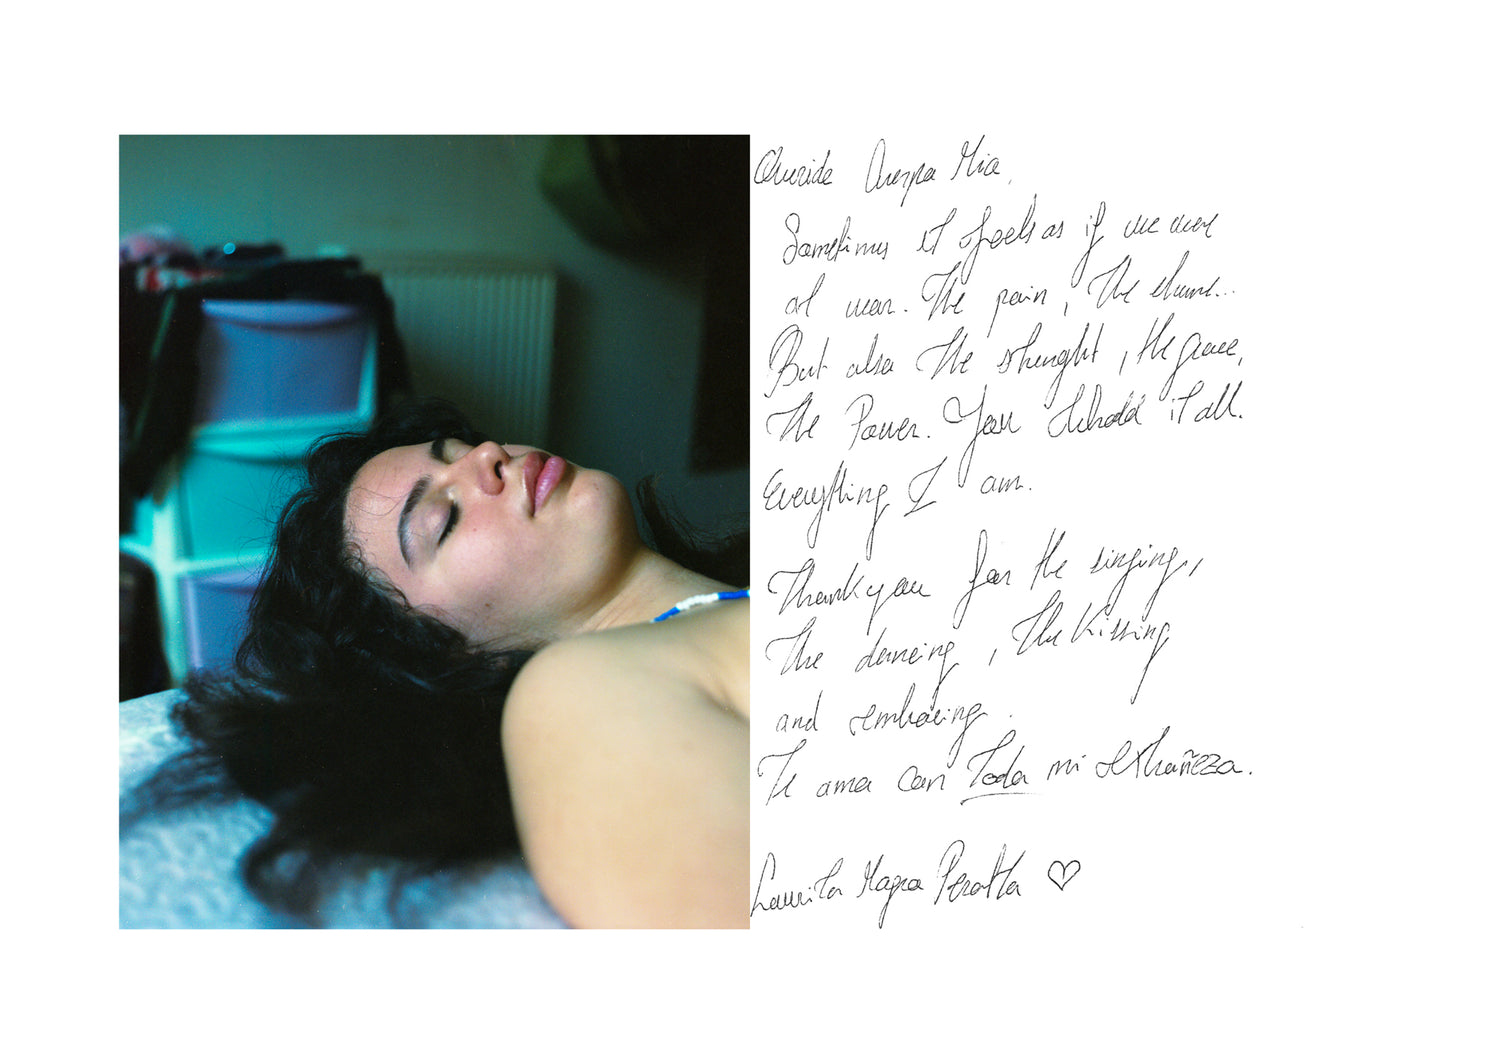 Queride Cuerpa Mia,
Sometimes it feels as if we were
at war. The pain, the shame...
But also the strenght, the grace,
the Power. You behold it all.
Everything I am.
Thank you for the singing,
the dancing, the kissing
and embracing.
Te ama con toda mi extrañeza.
Magra Peralta ♡